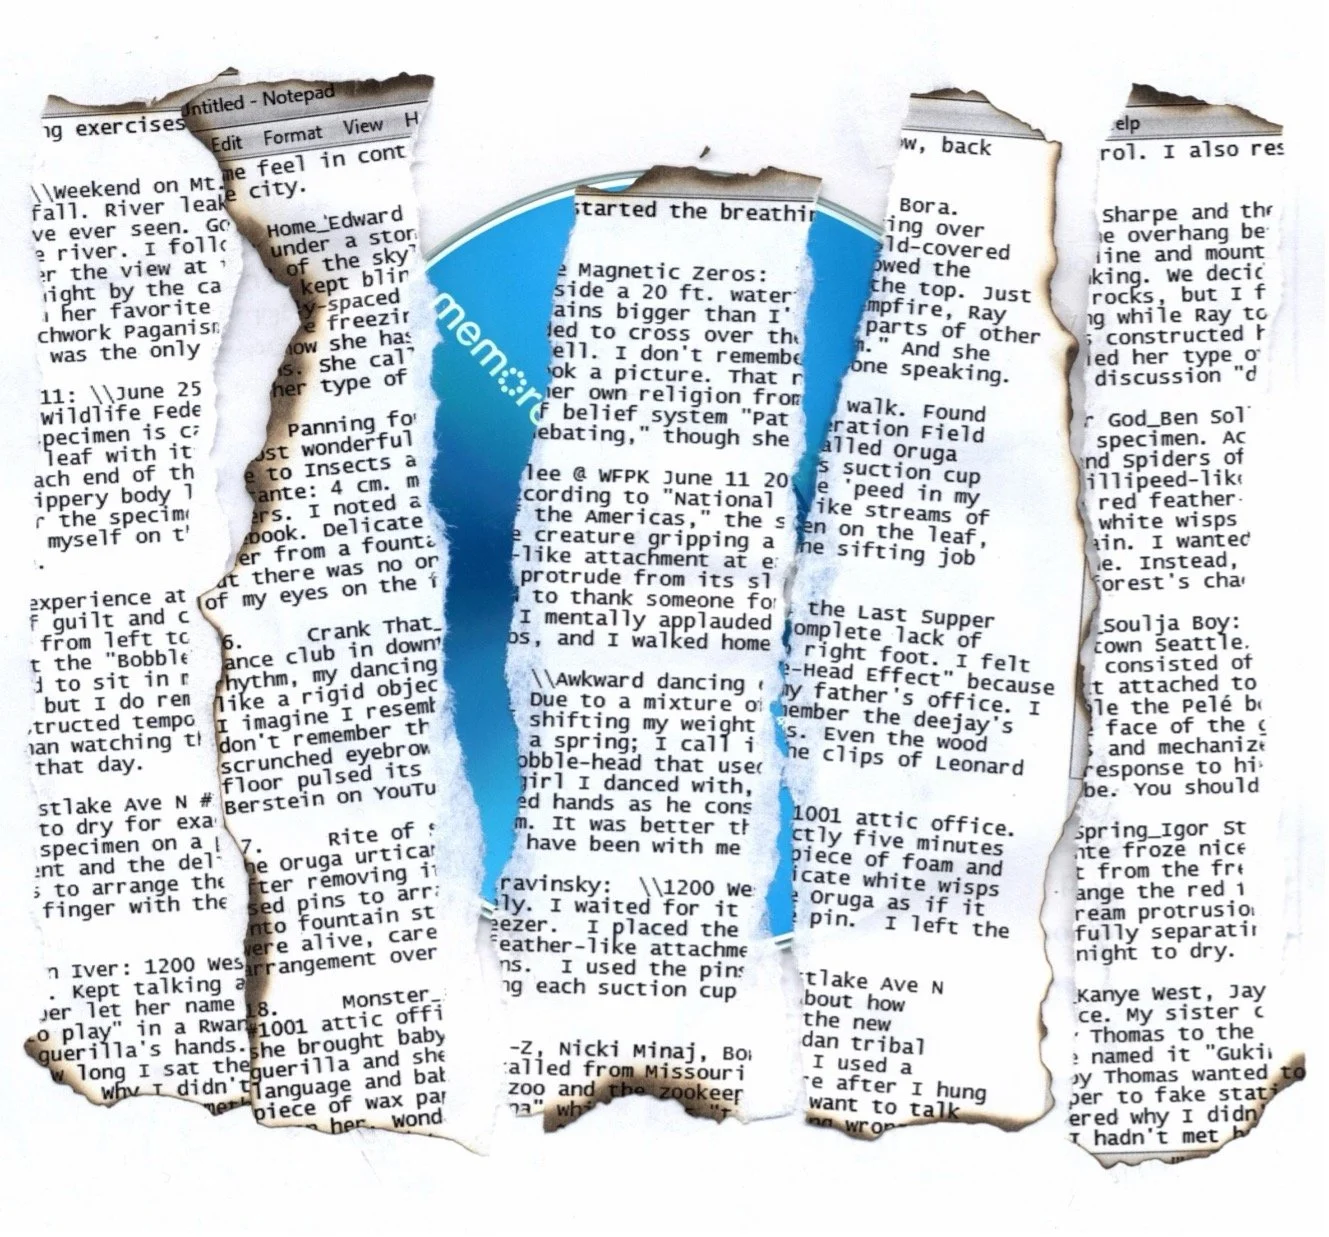 ng exercises
\\Weekend on Mt.
fall. River leak
ve ever seen. Go
e river. I follo
er the view at
ight by the ca
her favorite
chwork Paganism
was the only
11: \\June 25
Wildlife Fede
pecimen is ca
leaf with it
ach end of th
ippery body
r the specime
myself on t
.
experience at
f guilt and c
from left to
t the "Bobble
d to sit in
but I do rem
tructed tempo
an watching th
that day.
stlake Ave N #
to dry for exa
specimen on a
ent and the del
s to arrange the
finger with the
n Iver: 1200 Wes
. Kept talking a
er let her name
o play" in a Rwan
guerilla's hands.
w long I sat the
Why I didn't
meth
Untitled - Notepad
Edit Format View H
me feel in cont
e city.
Home_Edward
under a stor
of the sky
kept blin
y-spaced
e freezin
how she has
s. She call
her type of
Panning fo
ost wonderful
e to Insects a
ante: 4 cm. m
ers. I noted a
book. Delicate
er from a founta
ut there was no or
of my eyes on the f
6. Crank That_
ance club in down
hythm, my dancing
like a rigid objec
I imagine I resemb
don't remember th
scrunched eyebrow
floor pulsed its
Berstein on YouTu
7. Rite of S
he Oruga urtican
fter removing it
sed pins to arra
nto fountain st
were alive, care
arrangement over
18. Monster_
#1001 attic offi
she brought baby
guerilla and she
language and bab
piece of wax pap
n her. wond
memore
started the breathin
e Magnetic Zeros:
side a 20 ft. water
ains bigger than I'
ded to cross over th
ell. I don't remembe
ok a picture. That n
her own religion from
f belief system "Pat
ebating," though she
lee @ WFPK June 11 20
cording to "National
the Americas," the s
e creature gripping a
-like attachment at e
protrude from its sl
to thank someone fo
I mentally applauded
os, and I walked home
\\Awkward dancing
Due to a mixture of
shifting my weight
a spring; I call i
obble-head that used
girl I danced with,
ed hands as he cons
m. It was better th
have been with me
ravinsky: \\1200 We
ly. I waited for it
eezer. I placed the
feather-like attachme
ns. I used the pins
ng each suction cup
-Z, Nicki Minaj, Bo
called from Missouri
zoo and the zookeep
na" whi
ow, back
Bora.
ing over
ld-covered
owed the
the top. Just
mpfire, Ray
parts of other
m." And she
one speaking.
walk. Found
eration Field
alled Oruga
s suction cup
e 'peed in my
ike streams of
en on the leaf,
he sifting job
the Last Supper
omplete lack of
right foot. I felt
e-Head Effect" because
my father's office. I
ember the deejay's
s. Even the wood
he clips of Leonard
1001 attic office.
ctly five minutes
piece of foam and
icate white wisps
e Oruga as if it
e pin. I left the
stlake Ave N
bout how
the new
dan tribal
I used a
re after I hung
want to talk
ng wron
elp
rol. I also res
Sharpe and the
e overhang be
line and mount
king. We decid
rocks, but I f
ng while Ray to
s constructed h
ied her type of
discussion "d
r God_Ben Sol
specimen. Ac
nd Spiders of
illipeed-like
red feather-
white wisps
ain. I wanted
e. Instead,
forest's chao
_Soulja Boy:
town Seattle.
consisted of
t attached to
le the Pelé bo
face of the g
and mechanize
response to hi
be. You should
Spring_Igor St
nte froze nice
t from the fre
ange the red
ream protrusion
fully separatin
night to dry.
_Kanye West, Jay
ce. My sister c
Thomas to the
e named it "Guki
by Thomas wanted to
per to fake stati
ered why I didn'
I hadn't met h